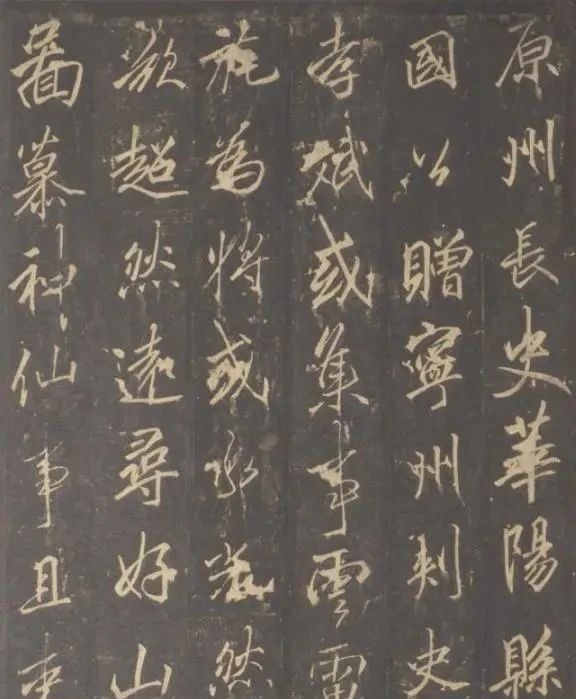 原州長史華陽縣
國公贈寧州刺史
孝斌或集事雲雷
為將或然
超然遠尋好山
啚慕神仙事且